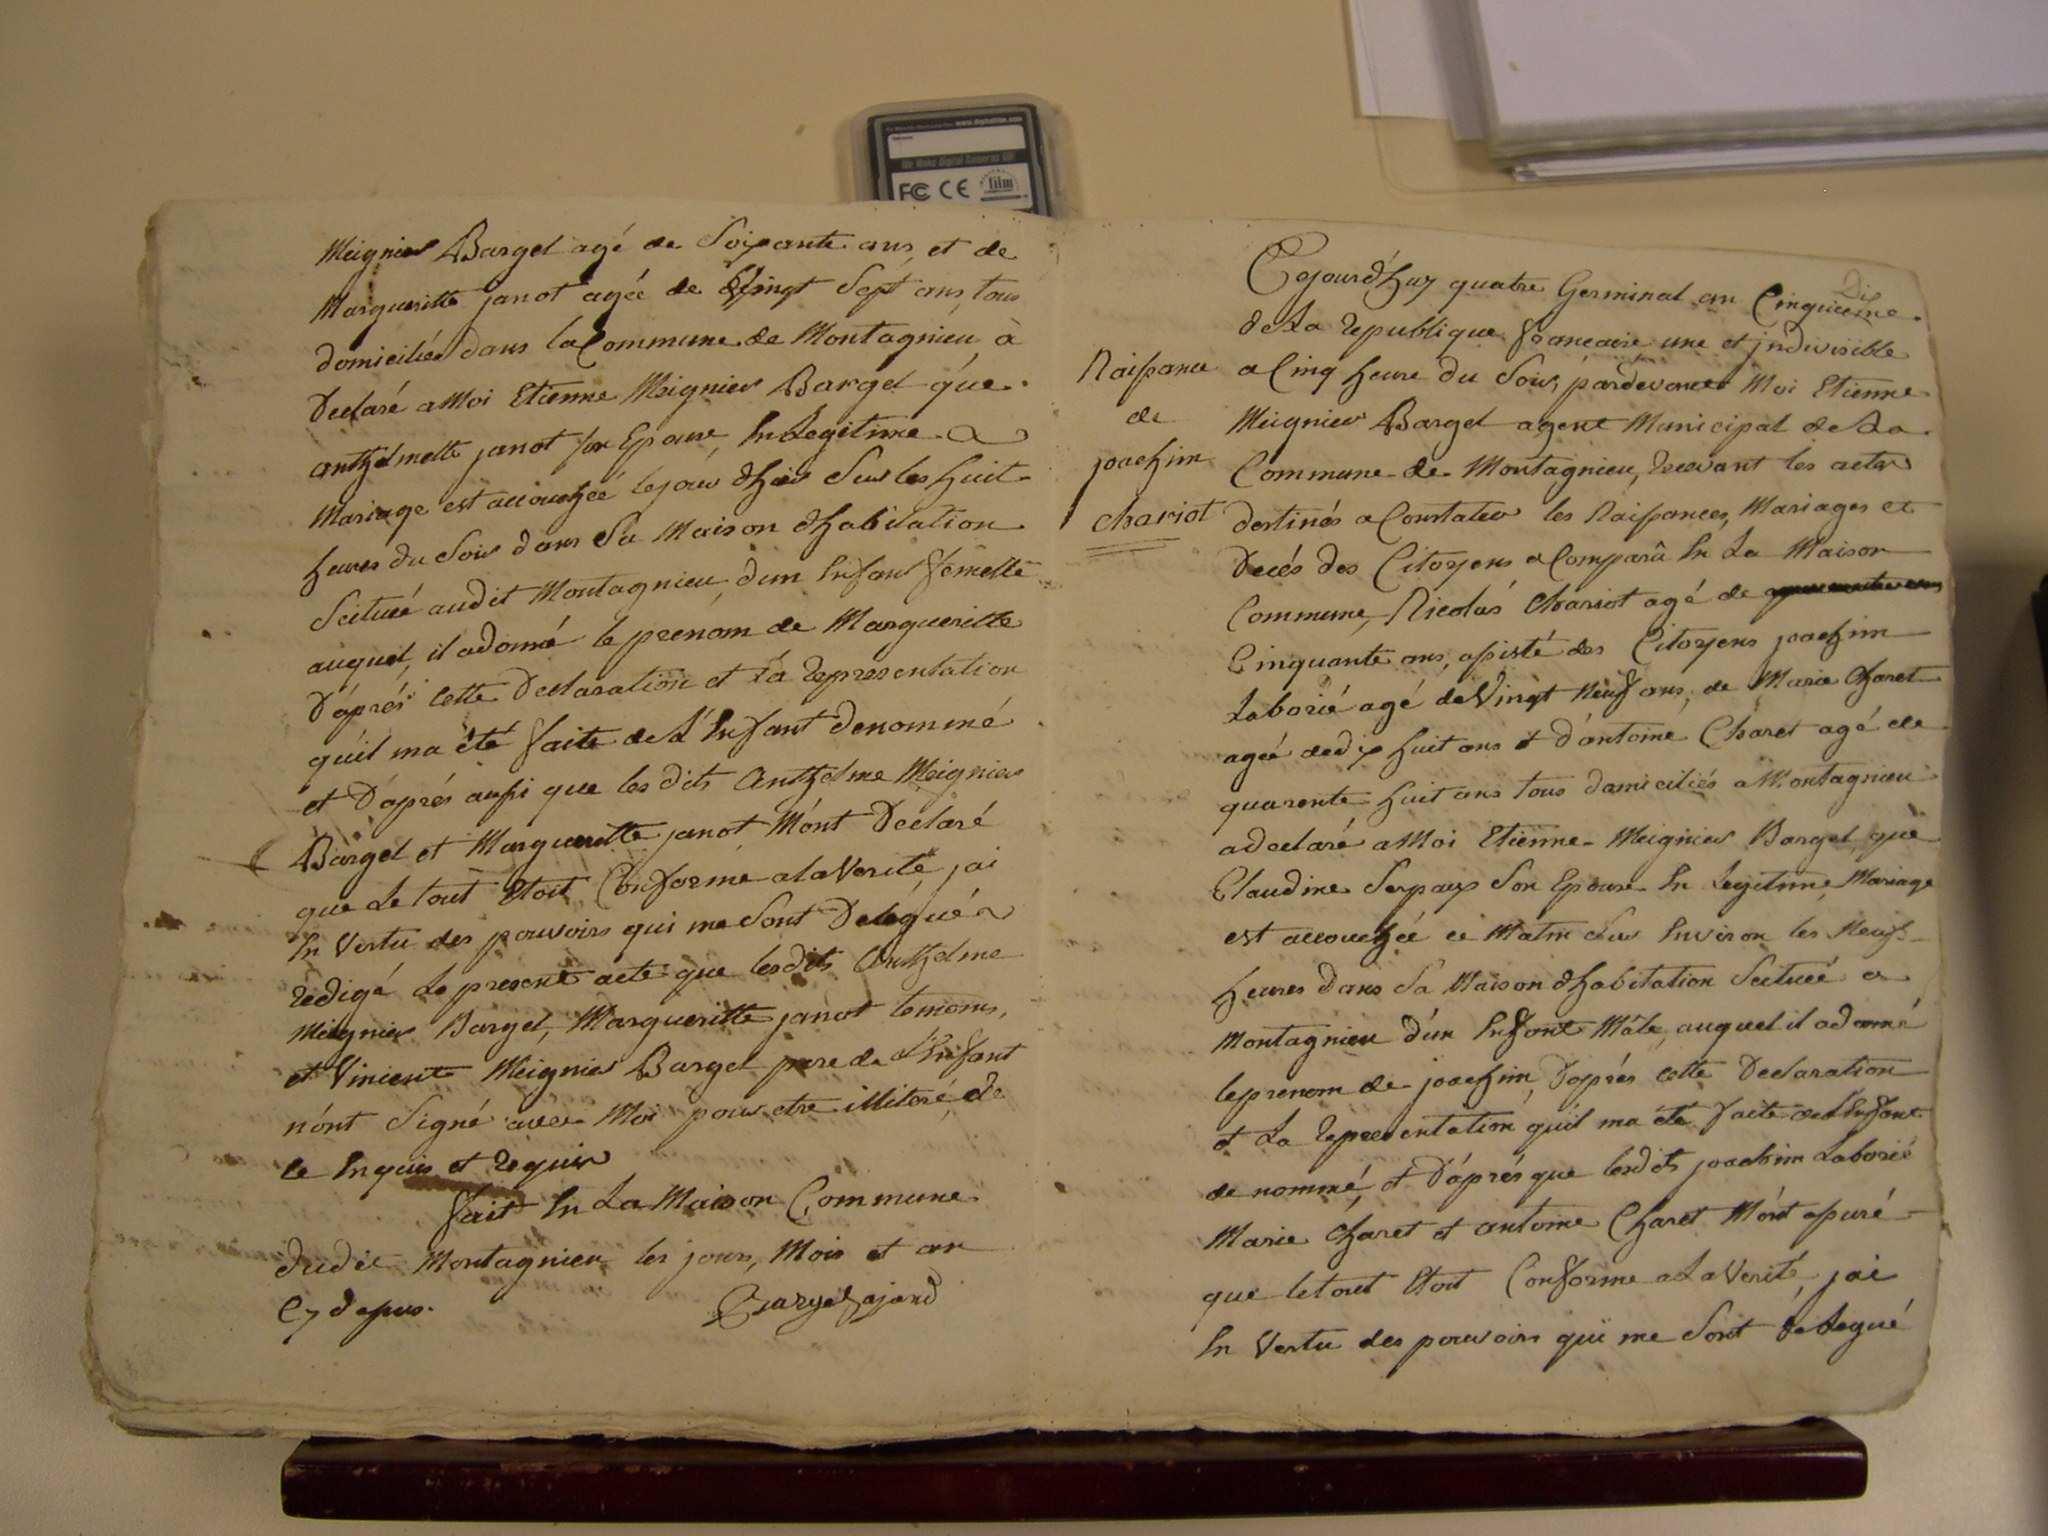 www.digitalfilm.com
We Make Digital Cameras GO!
FC CE film
Meignier Bargel agé de Soixante ans, et de
Margueritte janot agée de Vingt Sept ans, tous
domiciliés dans la Commune de Montagnieu à
Declaré a Moi Etienne Meignier Bargel que
anthelmette janot son Epouse, En Legitime
Mariage est accouchéé le jour d'hier Sur les huit
heures du Soir dans Sa Maison d'habitation
Scituéé audit Montagnieu, d'un Enfant femelle
auquel, il a donné le prenom de Margueritte
D'aprés cette Declaration et La representation
qu'il ma été faite de L'Enfant denommé
et D'aprés aussi que les dits Anthelme Meignier
Bargel et Margueritte janot M'ont Declaré
que Le tout Etoit Conforme a la Verité, jai
En Vertu des pouvoirs qui me Sont Delegués
redigé Le present acte que lesdits Anthelme
Meignier Bargel, Margueritte janot temoins,
et Vincent Meignier Bargel pere de L'Enfant
n'ont Signé avec Moi pour etre illiteré, de
ce Enquis et requis
fait En La Maison Commune
dudit Montagnieu les jours, Mois et an
Cy dessus. Bargel ajend
Naissance
de
joachim
chariot
Cejourd'huy quatre Germinal an Cinquieme
de La republique francaise une et indivisible
a Cinq heure du Soir, pardevant Moi Etienne
Meignier Bargel agent Municipal de La
Commune de Montagnieu, recevant les actes
destinés a Constater les Naissances, Mariages et
Decés des Citoyens a Comparû En La Maison
Commune, Nicolas Chariot agé de
Cinquante ans, assisté des Citoyens joachim
Laborié agé de Vingt Neuf ans, de Marie Charet
agéé de dix huit ans et d'antoine Charet agé de
quarente huit ans tous domiciliés a Montagnieu
a declaré a Moi Etienne Meignier Bargel, que
Claudine Serpaux Son Epouse En Legitime Mariage
est accouchéé ce Matin Sur Environ les Neuf
heures dans Sa Maison d'habitation Scituéé a
Montagnieu d'un Enfant Mâle, auquel il a donné
le prenom de joachim, D'aprés cette Declaration
et La representation qu'il ma été faite de L'Enfant
de nommé, et D'aprés que lesdits joachim Laborié
Marie Charet et antoine Charet M'ont assuré
que le tout Etoit Conforme a La Verité, jai
En Vertu des pouvoirs qui me Sont delegué